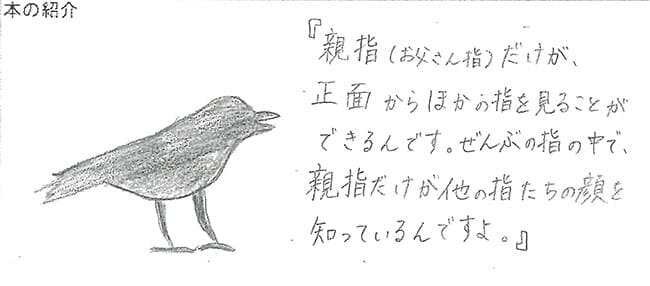 本の紹介
『親指(お父さん指)だけが、
正面からほかの指を見ることが
できるんです。ぜんぶの指の中で、
親指だけが他の指たちの顔を
知っているんですよ。』